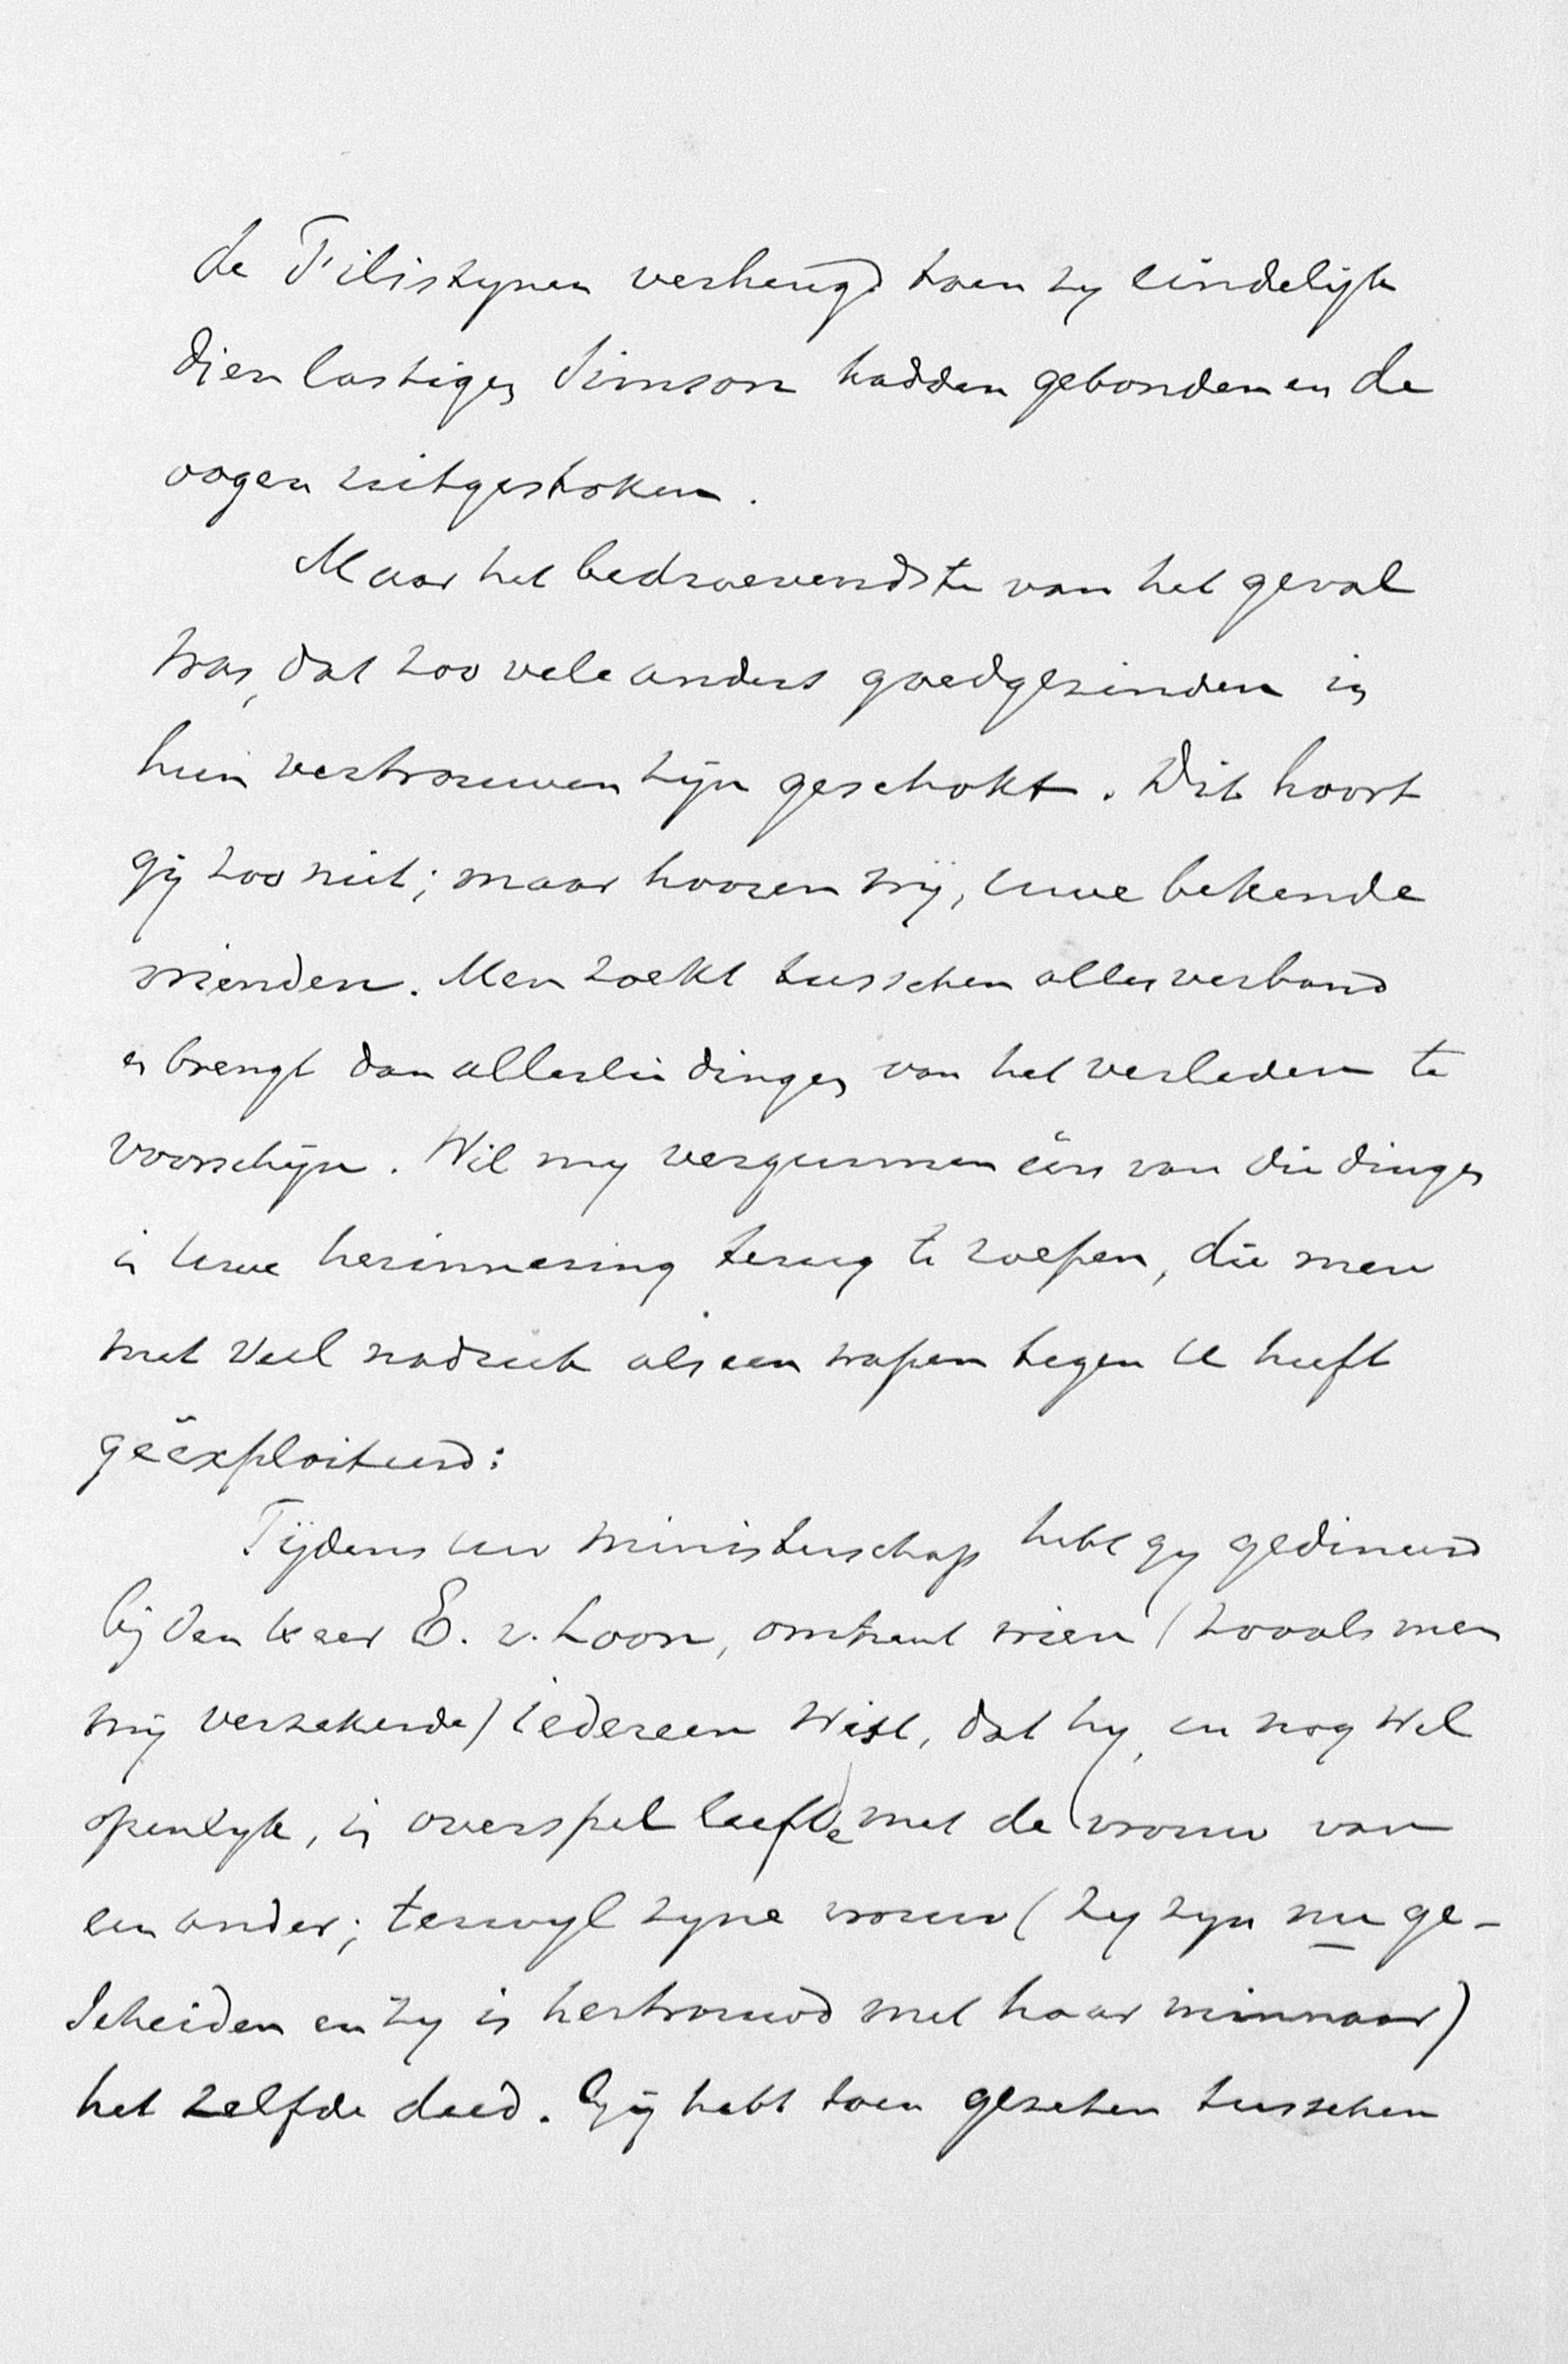 de Filistynen verheugd toen zy eindelijk
dien lastigen Simson hadden gebonden en de
oogen uitgestoken.
Maar het bedroevendste van het geval
was, dat zoo vele anders goedgezinden in
hun vertrouwen zijn geschokt. Dit hoort
gij zoo niet; maar hooren wij, uwe bekende
vrienden. Men zoekt tusschen alles verband
en brengt dan allerlei dingen van het verleden te
voorschijn. Wil my vergunnen één van die dingen
in uwe herinnering terug te roepen, die men
met veel nadruk als een wapen tegen U heeft
geëxploiteerd:
Tijdens uw ministerschap hebt gy gedineerd
bij den heer E. v. Loon, omtrent wien (zooals men
mij verzekerde) iedereen wist, dat hy, en nog wel
openlyk, in overspel leefde met de vrouw van
een ander; terwyl zyne vrouw (zy zyn nu ge-
scheiden en zy is hertrouwd met haar minnaar)
het zelfde deed. Gij hebt toen gezeten tusschen